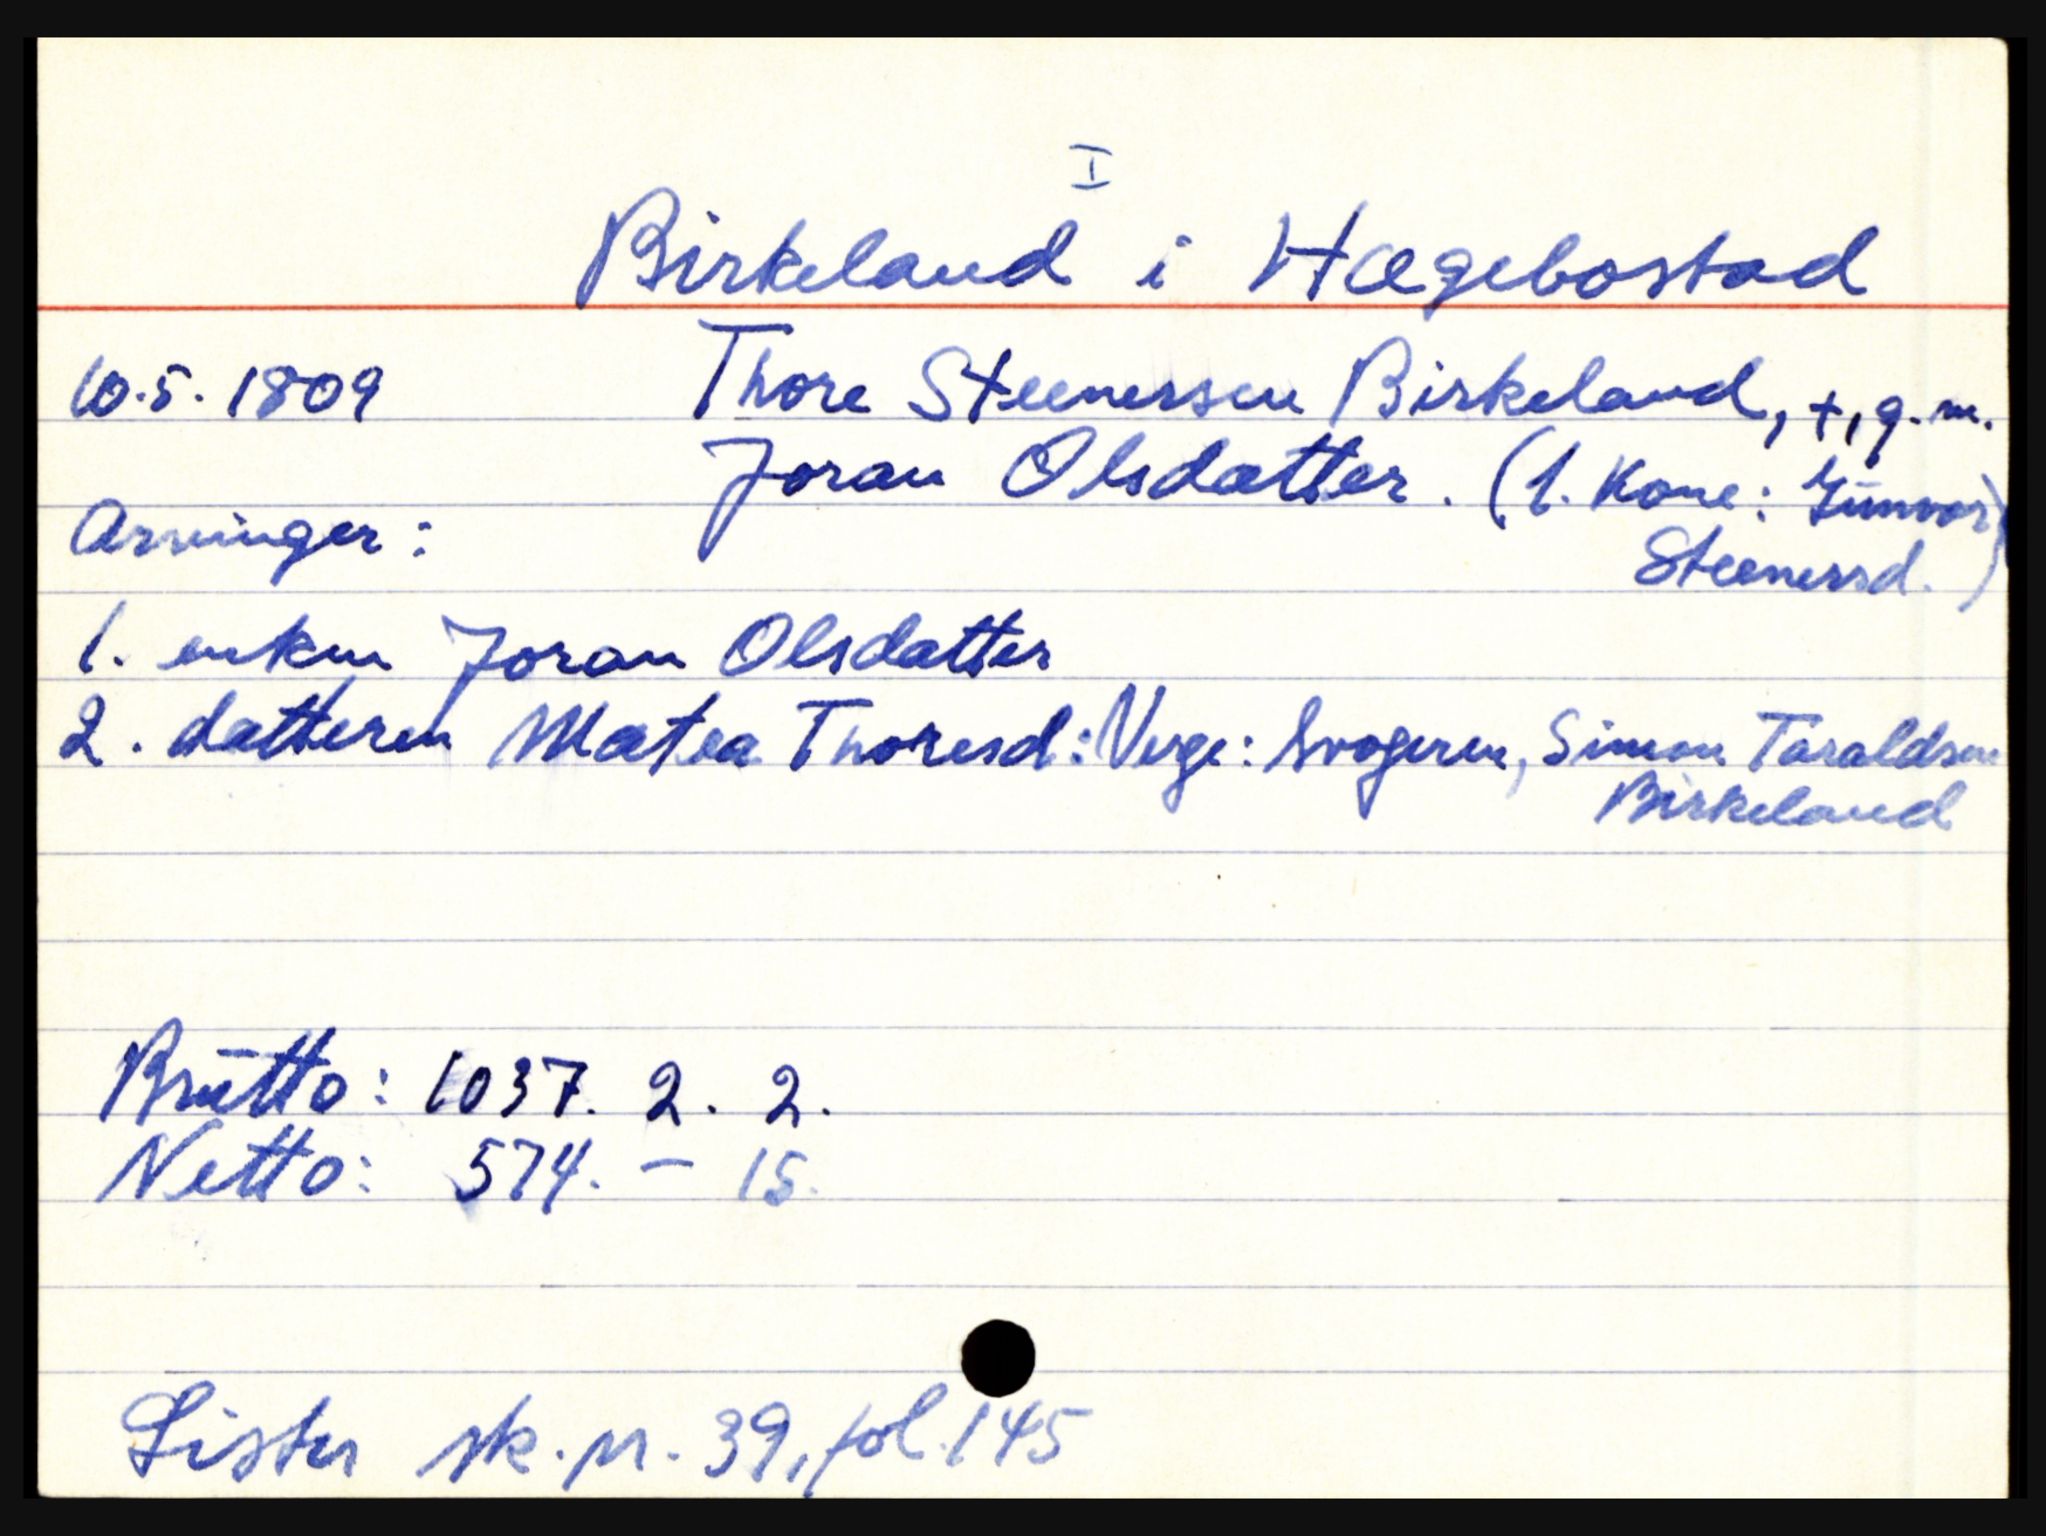 I
Birkeland i Hægebostad
10.5.1809 Thore Steenersen Birkeland, +, g.m.
Joran Olsdatter. (1. Kone: Gunvor
Steenersd.)
Arvinger:
1. enken Joran Olsdatter
2. datteren Matea Thoresd: Verge: Svogeren, Simon Taraldsen
Birkeland
Brutto: 1037. 2. 2.
Netto: 574. - 15.
Lister sk.pr. 39, fol. 145